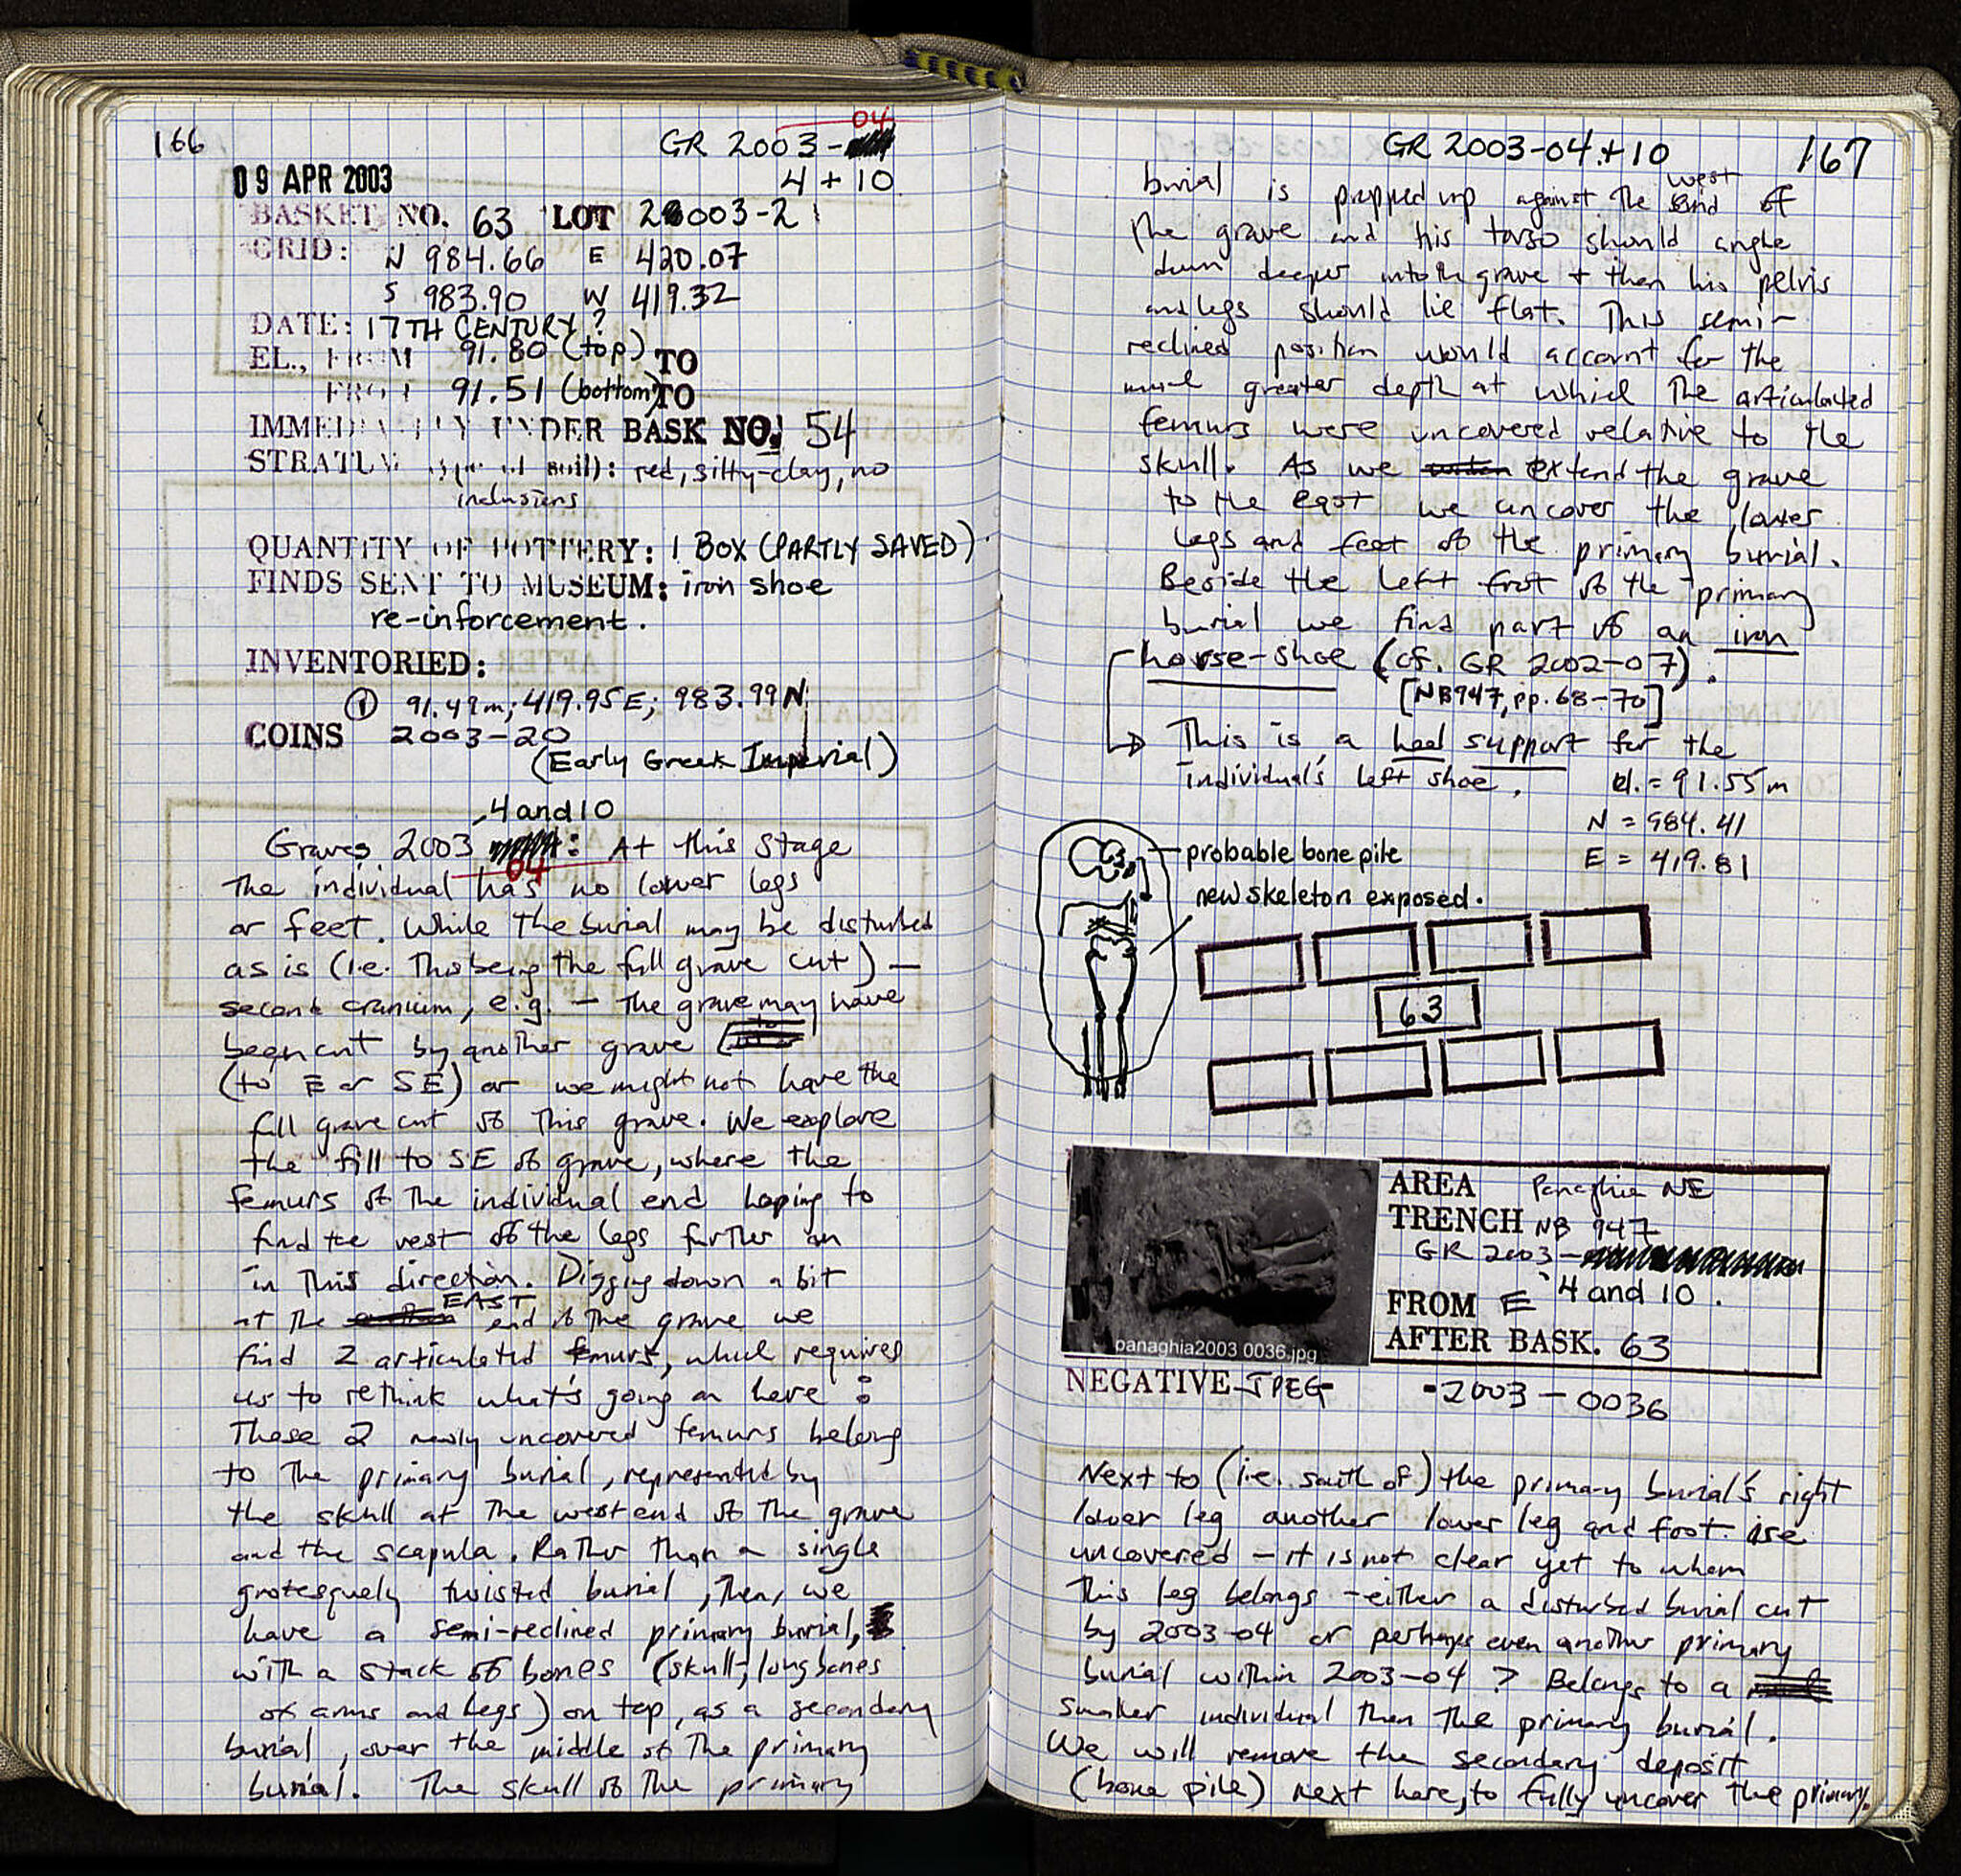 166
GR 2003-04
4 + 10
09 APR 2003
BASKET NO. 63 LOT 2003-21
GRID: N 984.66 E 420.07
S 983.90 W 419.32
DATE: 17TH CENTURY ?
EL., FROM 91.80 (top) TO
FROM 91.51 (bottom) TO
IMMEDIATELY UNDER BASK NO. 54
STRATUM (type of soil): red, silty-clay, no
inclusions
QUANTITY OF POTTERY: 1 BOX (PARTLY SAVED)
FINDS SENT TO MUSEUM: iron shoe
re-inforcement.
INVENTORIED:
① 91.49m; 419.95E; 983.99N
COINS 2003-20
(Early Greek Imperial)
4 and 10
Graves 2003 04: At this stage
the individual has no lower legs
or feet. While the burial may be disturbed
as is (i.e. this being the full grave cut) —
second cranium, e.g. — the grave may have
been cut by another grave
(to E or SE) or we might not have the
full grave cut of this grave. We explore
the fill to SE of grave, where the
femurs of the individual end hoping to
find the rest of the legs further on
in this direction. Digging down a bit
at the EAST end of the grave we
find 2 articulated femurs, which requires
us to rethink what's going on here:
These 2 newly uncovered femurs belong
to the primary burial, represented by
the skull at the west end of the grave
and the scapula. Rather than a single
grotesquely twisted burial, then, we
have a semi-reclined primary burial,
with a stack of bones (skull, long bones
of arms and legs) on top, as a secondary
burial, over the middle of the primary
burial. The skull of the primary
GR 2003-04+10 167
burial is propped up against the west end of
the grave and his torso should angle
down deeper into the grave + then his pelvis
and legs should lie flat. This semi-
reclined position would account for the
much greater depth at which the articulated
femurs were uncovered relative to the
skull. As we extend the grave
to the east we uncover the lower
legs and feet of the primary burial.
Beside the left foot of the primary
burial we find part of an iron
horse-shoe (cf. GR 2002-07).
[NB947, pp. 68-70]
This is a heel support for the
individual's left shoe. el. = 91.55m
N = 984.41
E = 419.81
probable bone pile
new skeleton exposed.
63
panaghia2003 0036.jpg
AREA Panaghia NE
TRENCH NB 947
GR 2003-
4 and 10.
FROM E
AFTER BASK. 63
NEGATIVE JPEG - 2003-0036
Next to (i.e. south of) the primary burial's right
lower leg another lower leg and foot are
uncovered - it is not clear yet to whom
this leg belongs - either a disturbed burial cut
by 2003-04 or perhaps even another primary
burial within 2003-04? Belongs to a
smaller individual than the primary burial.
We will remove the secondary deposit
(bone pile) next here, to fully uncover the primary.